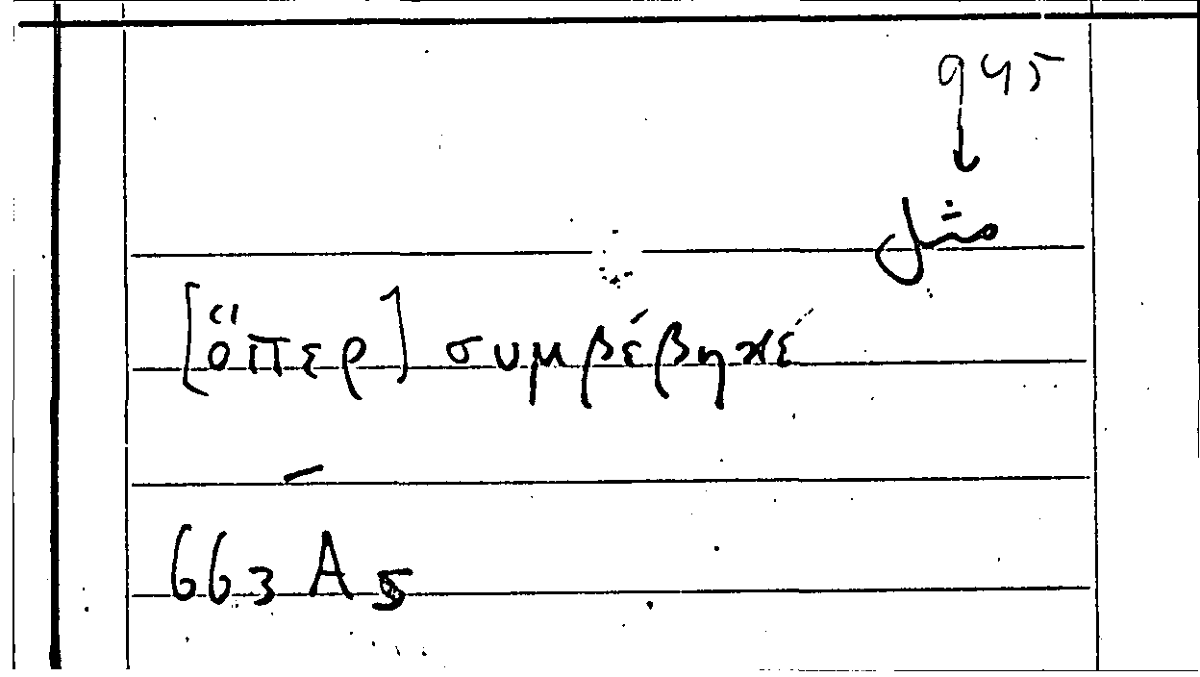 945
↓
مثل
[ὅπερ] συμβέβηκέ
663 A 5